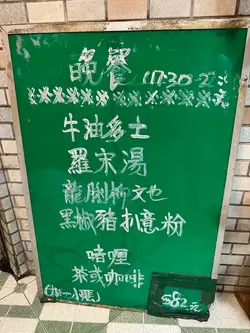 晚餐 (17:30-22:
牛油多士
羅宋湯
龍脷柳文也
黑椒豬扒意粉
啫喱
茶或咖啡
$82元